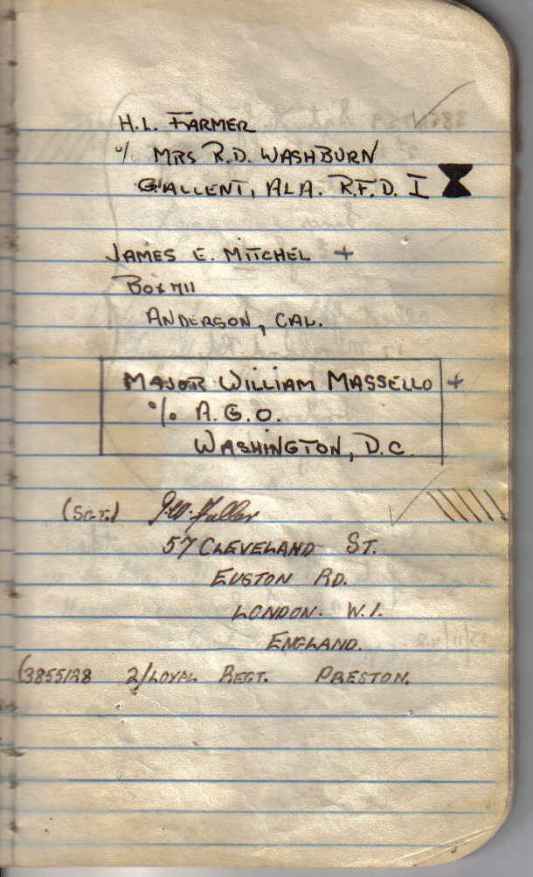 H.L. FARMER
% MRS R.D. WASHBURN
GALLENT, ALA. R.F.D. I
JAMES E. MITCHEL +
BOX 711
ANDERSON, CAL.
MAJOR WILLIAM MASSELLO +
% A.G.O.
WASHINGTON, D.C.
(SGT.) Fuller
57 CLEVELAND ST.
EUSTON RD.
LONDON. W.1.
ENGLAND.
(3855128 2/LOYAL REGT. PRESTON.